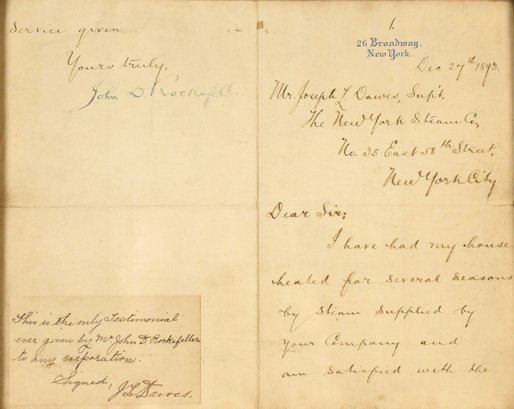 1.
26 Broadway.
New York.
Dec 27th 1893.
Mr. Joseph L Dawes, Sup't.
The New York Steam Co,
No. 35 East 58th Street,
New York City
Dear Sir:
I have had my house
heated for several seasons
by Steam supplied by
your Company and
am satisfied with the
Service given.
Yours truly,
John D Rockefeller.
This is the only Testimonial
ever given by Mr John D. Rockefeller
to any corporation.
Signed,
J L Dawes.